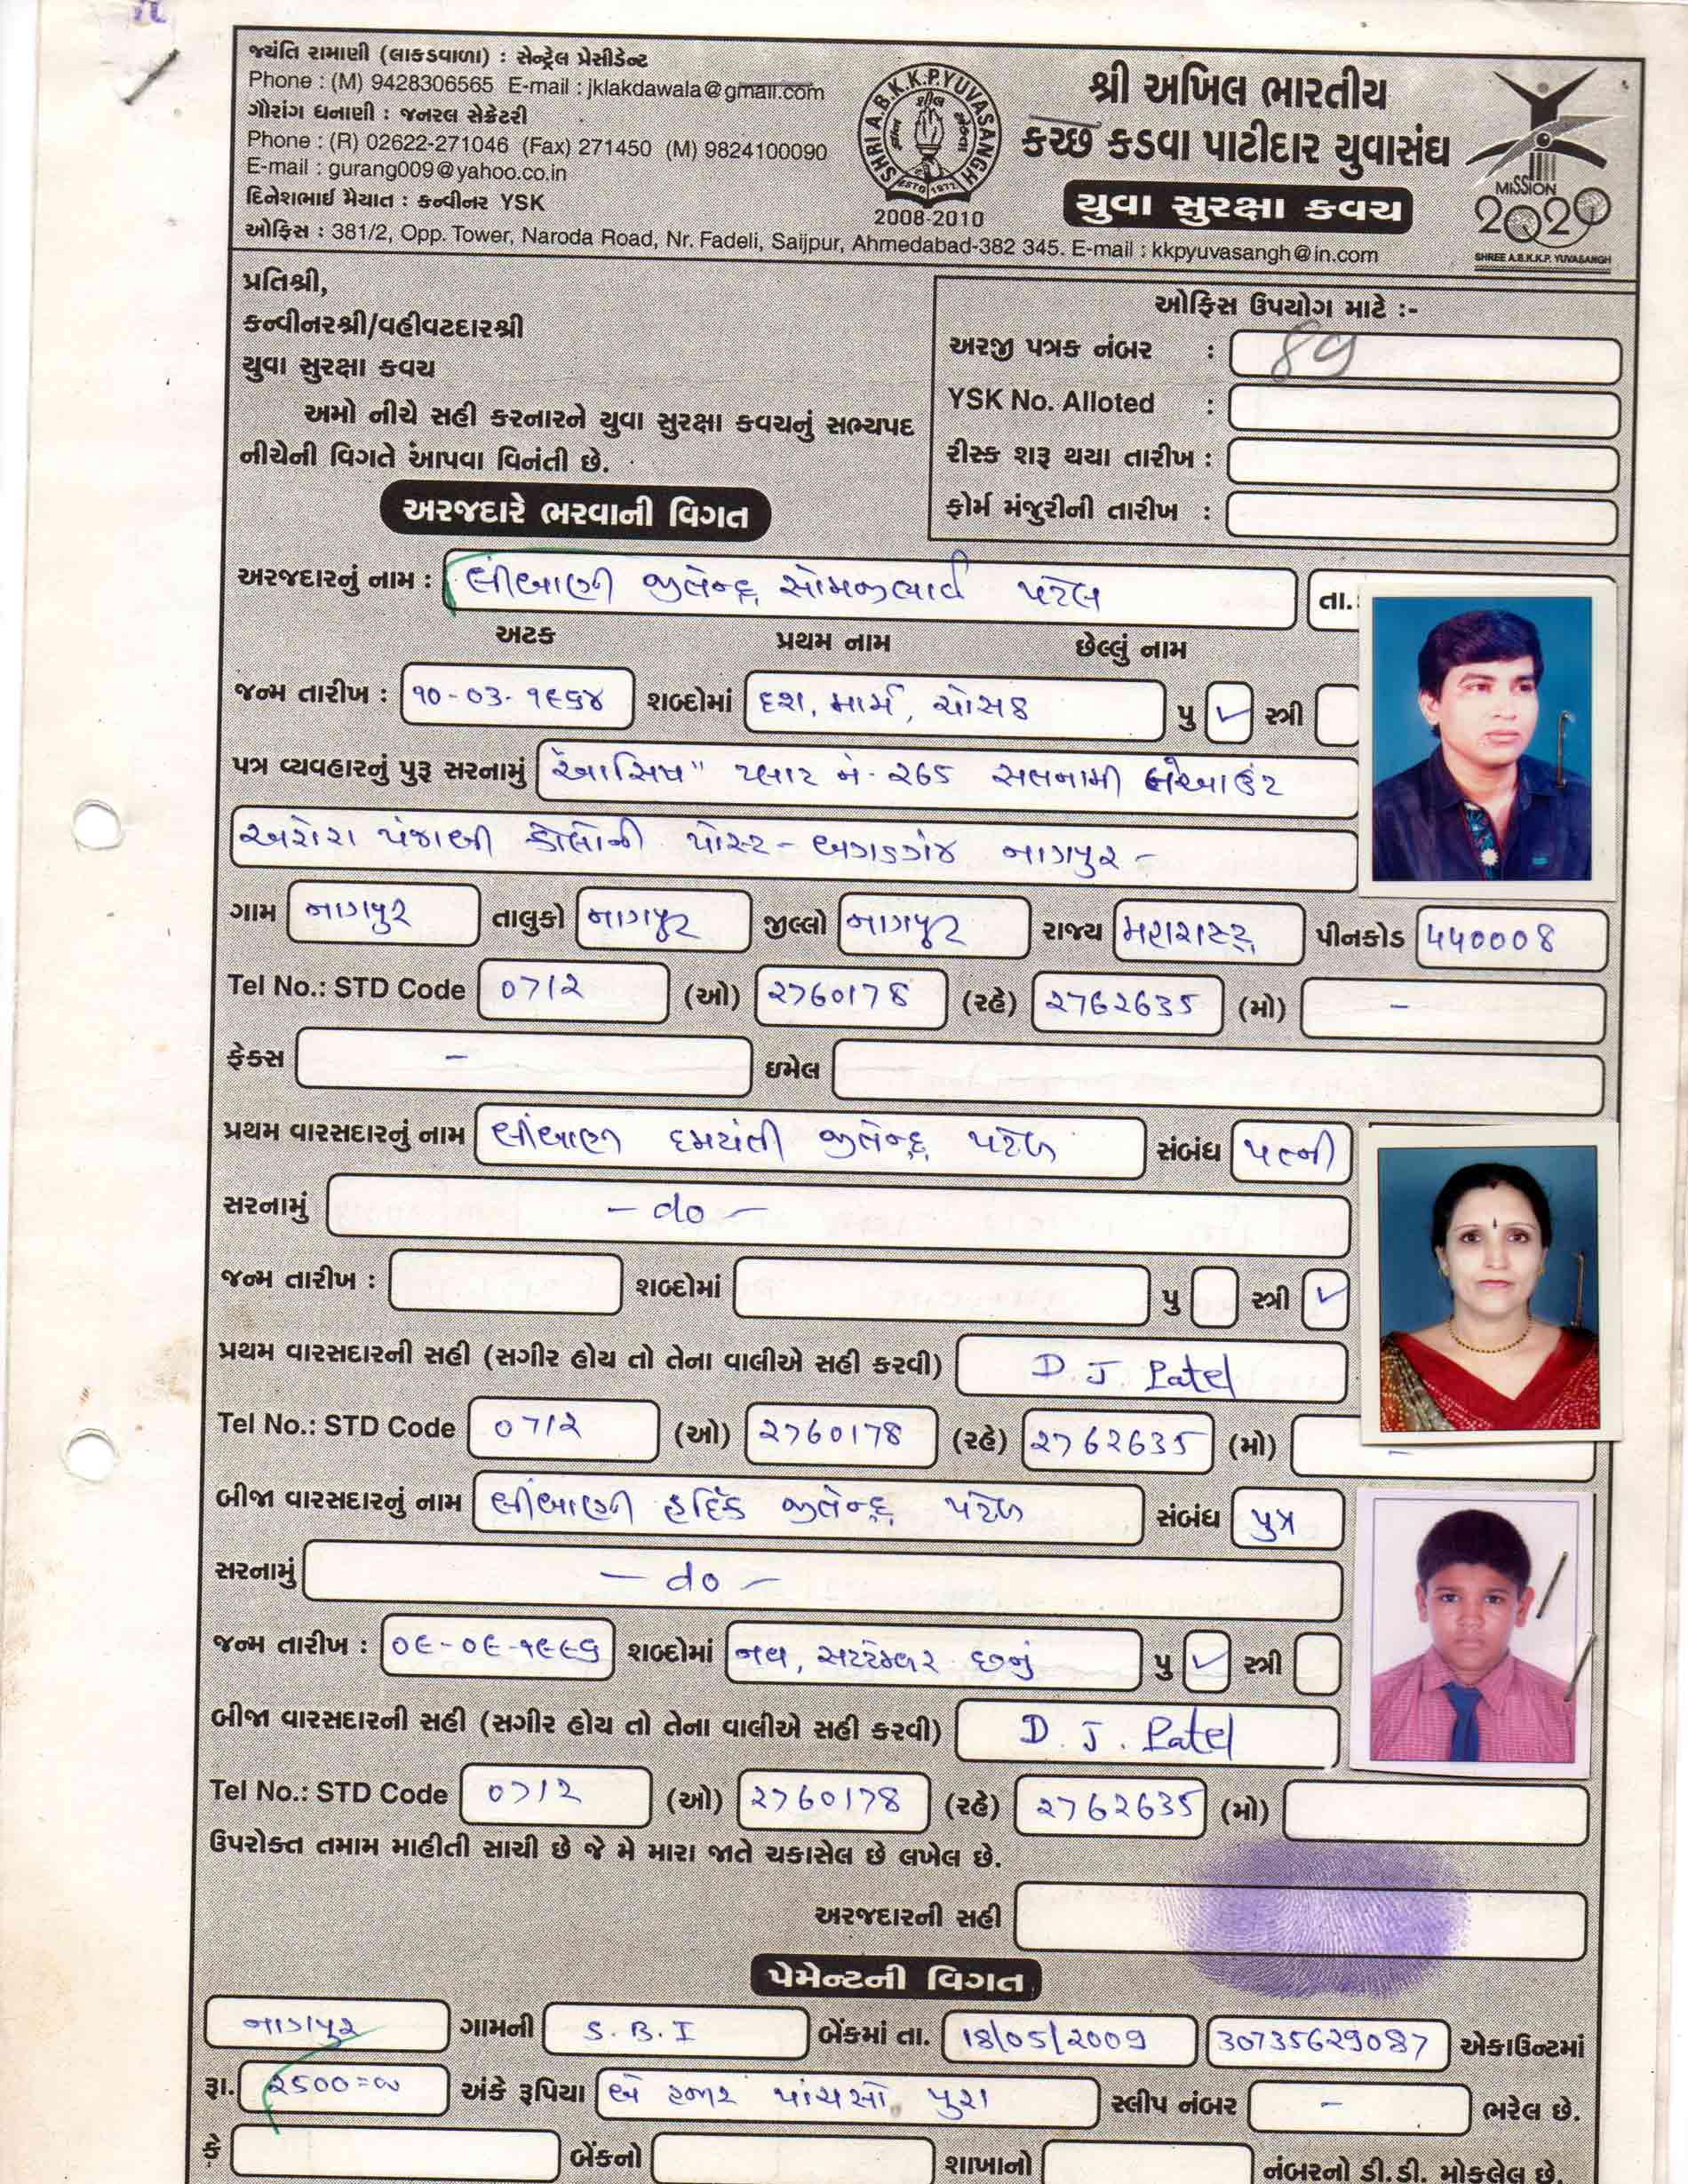 જયંતિ રામાણી (લાકડવાળા) : સેન્ટ્રેલ પ્રેસીડેન્ટ
Phone : (M) 9428306565 E-mail : jklakdawala@gmail.com
ગૌરાંગ ધનાણી : જનરલ સેક્રેટરી
Phone : (R) 02622-271046 (Fax) 271450 (M) 9824100090
E-mail : gurang009@yahoo.co.in
દિનેશભાઈ મૈયાત : કન્વીનર YSK
ઓફિસ : 381/2, Opp. Tower, Naroda Road, Nr. Fadeli, Saijpur, Ahmedabad-382 345. E-mail : kkpyuvasangh@in.com
SHRI A.B.K.K.P. YUVASANGH
ESTD 1977
2008-2010
શ્રી અખિલ ભારતીય
કચ્છ કડવા પાટીદાર યુવાસંઘ
યુવા સુરક્ષા કવચ
MISSION
2020
SHREE A.B.K.K.P. YUVASANGH
પ્રતિશ્રી,
કન્વીનરશ્રી/વહીવટદારશ્રી
યુવા સુરક્ષા કવચ
અમો નીચે સહી કરનારને યુવા સુરક્ષા કવચનું સભ્યપદ
નીચેની વિગતે આપવા વિનંતી છે.
ઓફિસ ઉપયોગ માટે :-
અરજી પત્રક નંબર : 89
YSK No. Alloted :
રીસ્ક શરૂ થયા તારીખ :
ફોર્મ મંજુરીની તારીખ :
અરજદારે ભરવાની વિગત
અરજદારનું નામ : લીંબાણી જીતેન્દ્ર સોમજીભાઈ પટેલ તા.
અટક પ્રથમ નામ છેલ્લું નામ
જન્મ તારીખ : ૧૦-૦૩-૧૯૬૪ શબ્દોમાં દશ, માર્ચ, ચોસઠ પુ ✓ સ્ત્રી
પત્ર વ્યવહારનું પુરૂ સરનામું "આસિષ" પ્લાટ નં- ૨65 સતનામી લેઆઉટ
અરોરા પંજાબી કોલોની પોસ્ટ - બગડગંજ નાગપુર -
ગામ નાગપુર તાલુકો નાગપુર જીલ્લો નાગપુર રાજ્ય મહારાષ્ટ્ર પીનકોડ ૪૪૦૦૦8
Tel No.: STD Code 071૨ (ઓ) ૨760178 (રહે) ૨76૨635 (મો) -
ફેક્સ - ઇમેલ
પ્રથમ વારસદારનું નામ લીંબાણી દમયંતી જીતેન્દ્ર પટેલ સંબંધ પત્ની
સરનામું - do -
જન્મ તારીખ : શબ્દોમાં પુ સ્ત્રી ✓
પ્રથમ વારસદારની સહી (સગીર હોય તો તેના વાલીએ સહી કરવી) D. J. Patel
Tel No.: STD Code 071૨ (ઓ) ૨760178 (રહે) ૨76૨635 (મો) -
બીજા વારસદારનું નામ લીંબાણી હાર્દિક જીતેન્દ્ર પટેલ સંબંધ પુત્ર
સરનામું - do -
જન્મ તારીખ : ૦૯-૦૯-૧૯૯૬ શબ્દોમાં નવ, સપ્ટેમ્બર છન્નું પુ ✓ સ્ત્રી
બીજા વારસદારની સહી (સગીર હોય તો તેના વાલીએ સહી કરવી) D. J. Patel
Tel No.: STD Code 071૨ (ઓ) ૨760178 (રહે) ૨76૨635 (મો)
ઉપરોક્ત તમામ માહીતી સાચી છે જે મે મારા જાતે ચકાસેલ છે લખેલ છે.
અરજદારની સહી
પેમેન્ટની વિગત
નાગપુર ગામની S. B. I બેંકમાં તા. 18/05/૨009 30735629087 એકાઉન્ટમાં
રૂા. ૨500=00 અંકે રૂપિયા બે હજાર પાંચસો પુરા સ્લીપ નંબર - ભરેલ છે.
કે બેંકનો શાખાનો નંબરનો ડી.ડી. મોકલેલ છે.